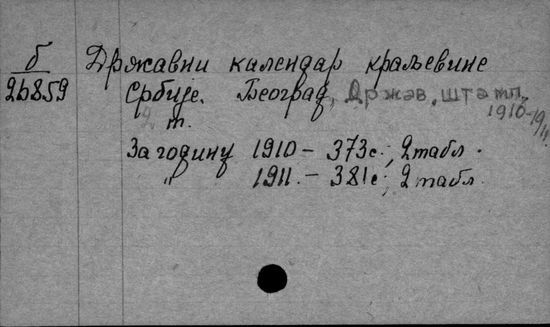 б
26859
Државни календар краљевине
Србије. Београд, Држав. штамп.
1910-1911.
2 т.
За годину 1910 – 373 с.; 2 табл.
" 1911. – 381 с; 2 табл.